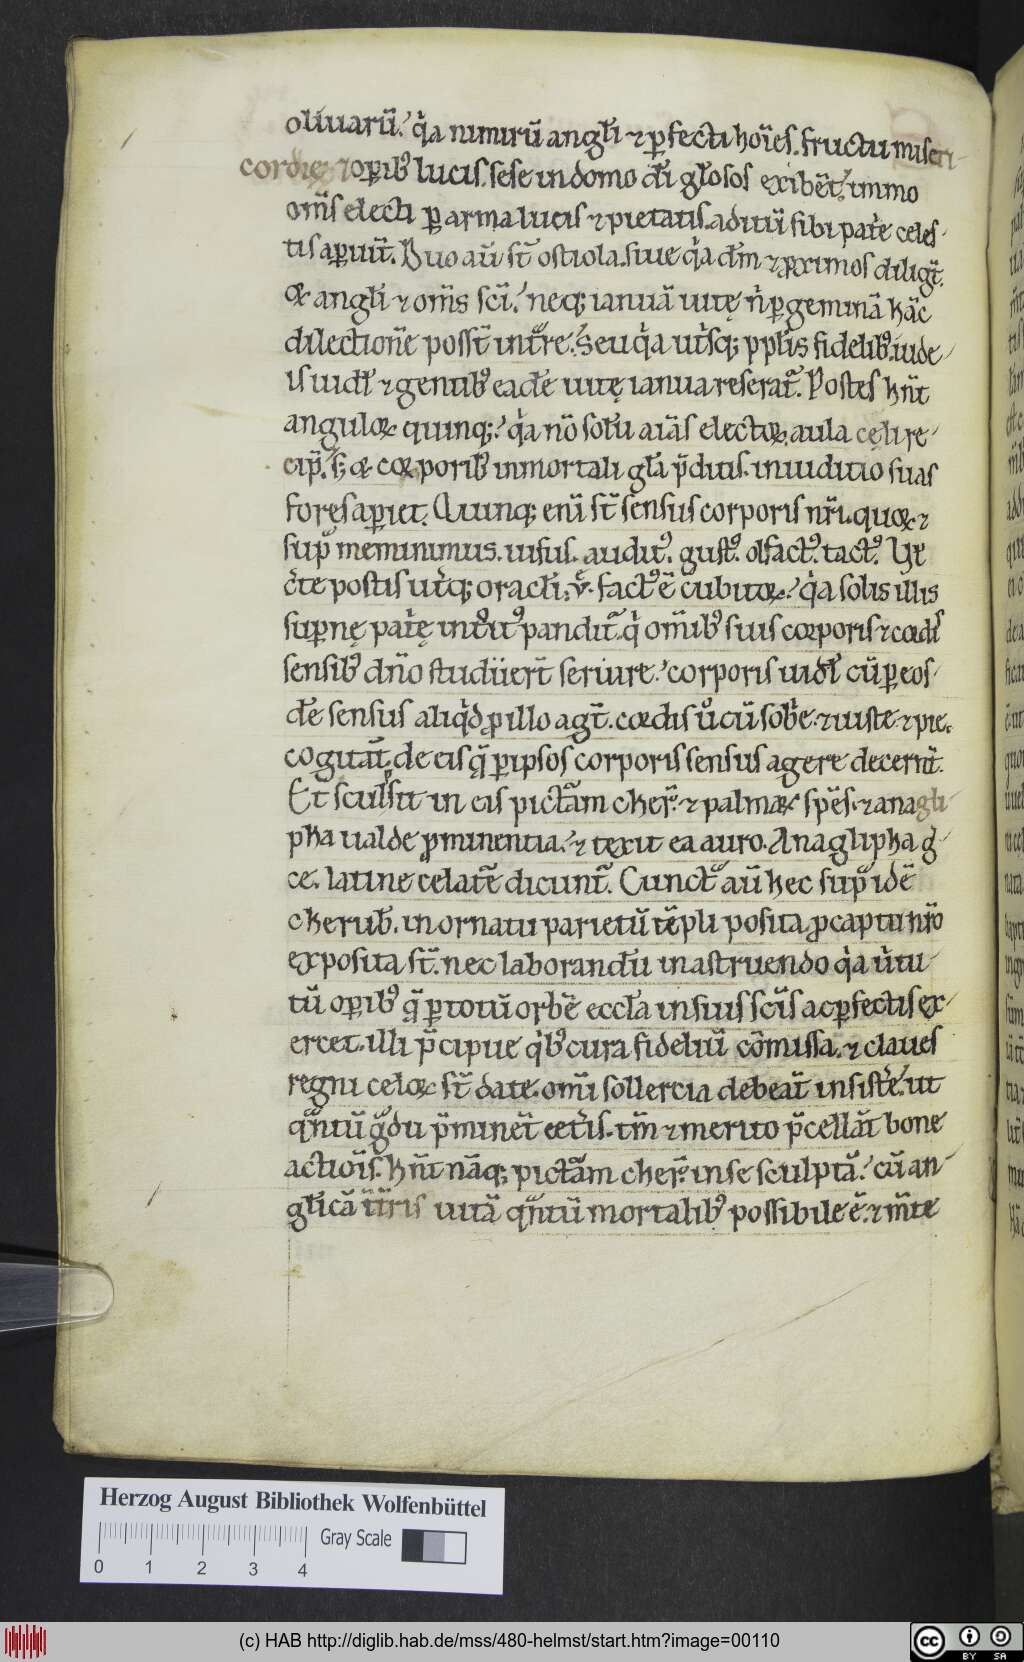 oliuarū. q̇a nimirū angłi ⁊ ꝑfecti hoīes. fructu miseri-
cordię ⁊ oꝑibꝰ lucis. sese in domo dī głosos exibēt. immo
om̄s electi ꝑ arma lucis ⁊ pietatis. aditū sibi pat̄e celes-
tis aꝑuīt. Duo aū st̄ ostiola. siue q̇a dm̄ ⁊ ꝓximos diligt̄.
⁊ angłi ⁊ om̄s sci. neq; ianuā uitę n̄ ꝑ geminā hāc
dilectionē possīt int̄re. Seu q̇a ut̄sq; ppłis fidelibꝰ. iude-
is uidł ⁊ gentibꝰ eadē uitę ianua reserat̄. Postes hn̄t
anguloꝝ quinq;. q̇a nō solū aīas electoꝝ aula cęli re-
cip̄. s; ⁊ corporibꝰ inmortali głа p̄ditis. introitū suas
fores aꝑiet. Quinq; enī st̄ sensus corporis nr̄i. quoꝝ ⁊
sup̄ meminimus. uisus. auditꝰ. gustꝰ. olfactꝰ. tactꝰ. Vł
c̄te postis ut̄q; oracłi. v. factꝰ ē cubitoꝝ. q̇a solis illis
suꝑnę pat̄ę introitꝰ pandit̄. q̇ om̄ibꝰ suis corporis ⁊ cordis
sensibꝰ dn̄o studuert̄ seruire. corporis uidł cū ꝑ eos-
dē sensus aliq̇d ꝓ illo agt̄. cordis u̇o cū sobr̄e. ⁊ iuste ⁊ pie.
cogitāt de eis q̄ ꝑ ipsos corporis sensus agere decernt̄.
Et sculpsit in eis pictām cher̄. ⁊ palmaꝝ spēs. ⁊ anagli-
pha ualde ꝓminentia. ⁊ texit ea auro. Anaglipha g̊-
ce. latine celatē dicunt̄. Cunctā aū hec sup̄ idē
cherub̄. in ornatu parietū tēpli posita. ꝓ captu nr̄o
exposita st̄. nec laborandū in astruendo q̇a u̇tu-
tū oꝑibꝰ q̄ ꝑ totū orbē eccłа in suis scīs ac ꝑfectis ex-
ercet. illi p̄cipue q̇bꝰ cura fideliū cōmissa. ⁊ claues
regni celoꝝ st̄ date. omī sollercia debeāt insist̄e. ut
qn̄tū g̊du p̄minēt cet̄is. tm̄ ⁊ merito p̄cellāt bone
actiōis. Hn̄t nāq; pictām cher̄. in se sculptā. cū an-
głicā in t̄ris uitā qn̄tū mortalibꝰ possibile ē. ⁊ m̄te
Herzog August Bibliothek Wolfenbüttel
0 1 2 3 4 Gray Scale
(c) HAB http://diglib.hab.de/mss/480-helmst/start.htm?image=00110
cc BY SA